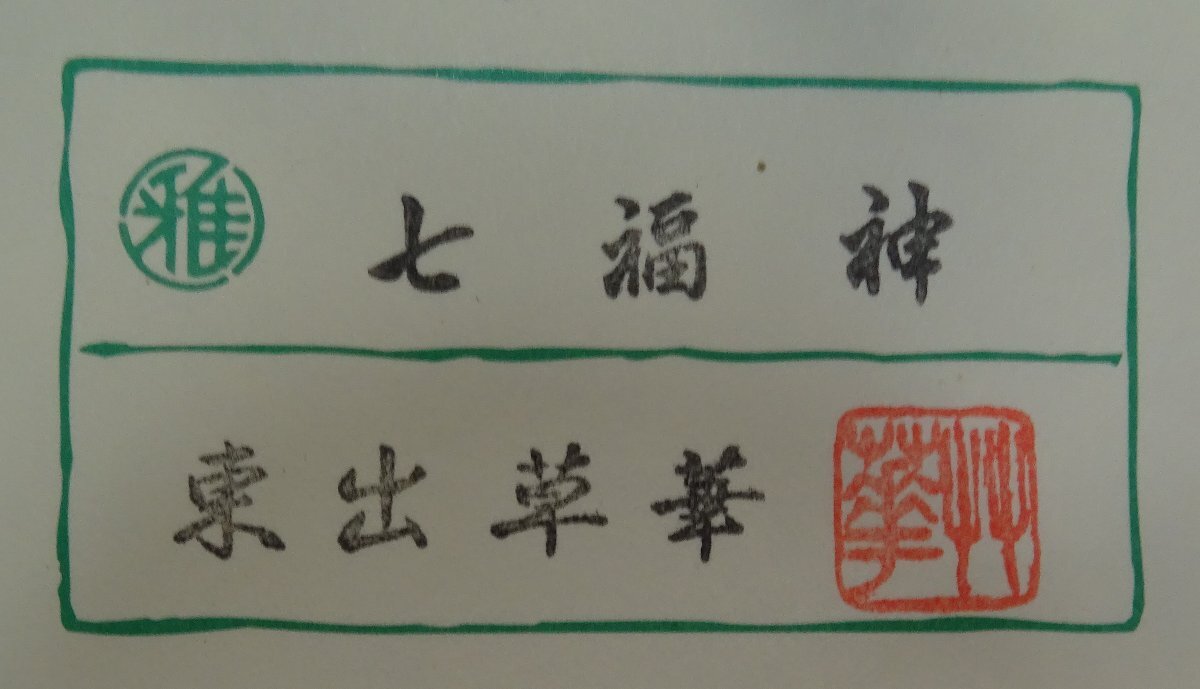 雅 七福神
東出草華 艸華